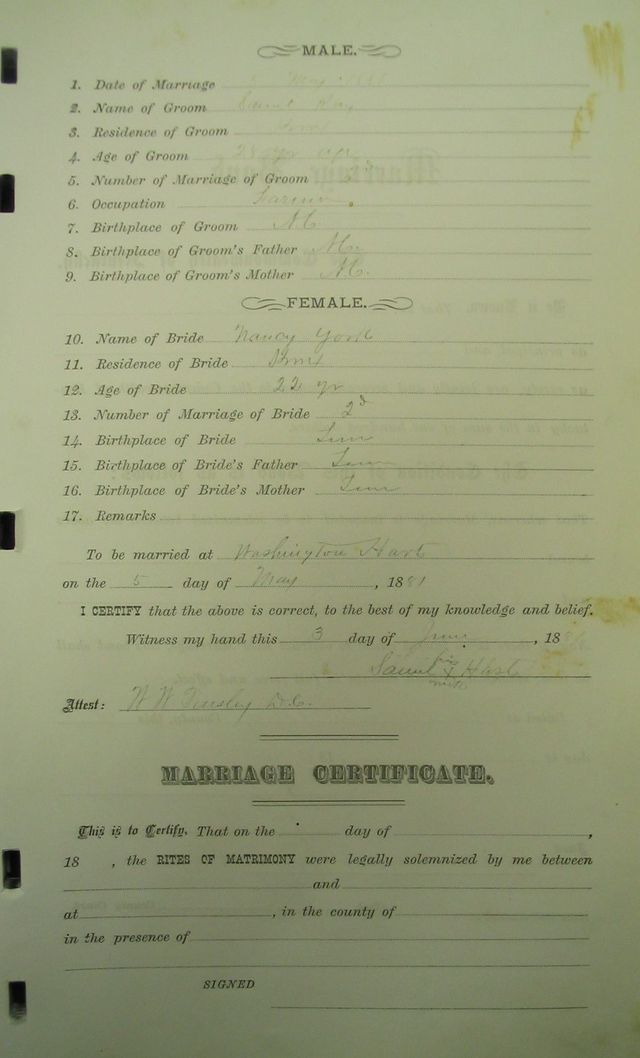 MALE.
1. Date of Marriage 5 May 1881
2. Name of Groom Saml
3. Residence of Groom
4. Age of Groom 28 yr
5. Number of Marriage of Groom
6. Occupation Farmer
7. Birthplace of Groom N.C.
8. Birthplace of Groom's Father N.C.
9. Birthplace of Groom's Mother N.C.
FEMALE.
10. Name of Bride Nancy York
11. Residence of Bride
12. Age of Bride 22 yr
13. Number of Marriage of Bride 2d
14. Birthplace of Bride Tenn
15. Birthplace of Bride's Father Tenn
16. Birthplace of Bride's Mother Tenn
17. Remarks
To be married at Washington Harts
on the 5 day of May, 1881
I CERTIFY that the above is correct, to the best of my knowledge and belief.
Witness my hand this 3 day of, 18
Saml his x Hart
mark
Attest: W W Tinsley D.C.
MARRIAGE CERTIFICATE.
This is to Certify, That on the day of ,
18 , the RITES OF MATRIMONY were legally solemnized by me between
and
at , in the county of
in the presence of
SIGNED